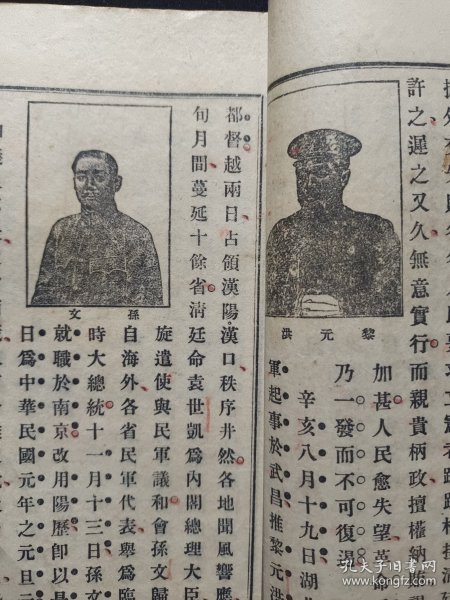 許之遲之又久無意實行而親貴柄政擅權納
黎元洪
加甚人民愈失望革命
乃一發而不可復遏
辛亥八月十九日湖北
軍起事於武昌推黎元洪
都督越兩日占領漢陽漢口秩序井然各地聞風響應
旬月間蔓延十餘省清廷命袁世凱爲內閣總理大臣
孫文
旋遣使與民軍議和會孫文歸
自海外各省民軍代表舉爲臨
時大總統十一月十三日孫文
就職於南京改用陽歷卽以是
日爲中華民國元年之元旦
孔夫子旧书网